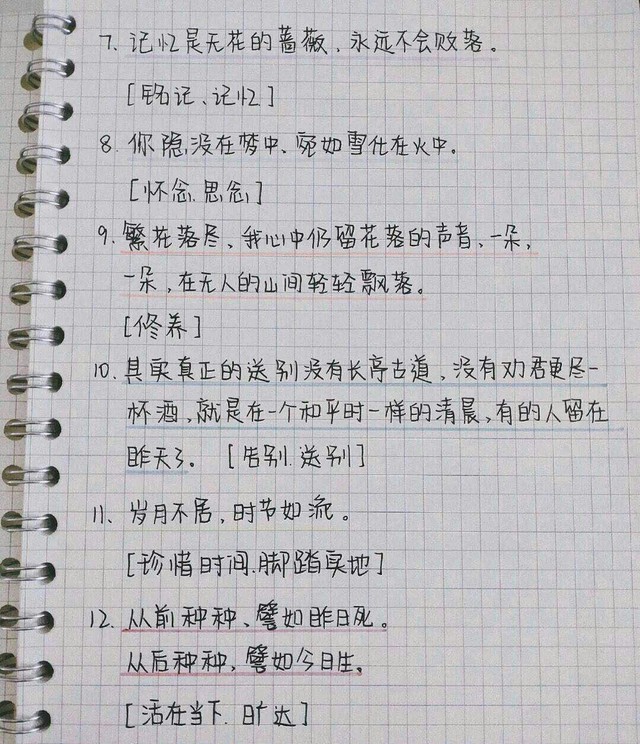 7. 记忆是无花的蔷薇，永远不会败落。
[铭记、记忆]
8. 你隐没在梦中、宛如雪化在火中。
[怀念、思念]
9. 繁花落尽，我心中仍留花落的声音、一朵，
一朵，在无人的山间轻轻飘落。
[修养]
10. 其实真正的送别没有长亭古道，没有劝君更尽一
杯酒，就是在一个和平时一样的清晨，有的人留在
昨天了。 [告别、送别]
11、岁月不居，时节如流。
[珍惜时间、脚踏实地]
12、从前种种、譬如昨日死。
从后种种，譬如今日生。
[活在当下、旷达]